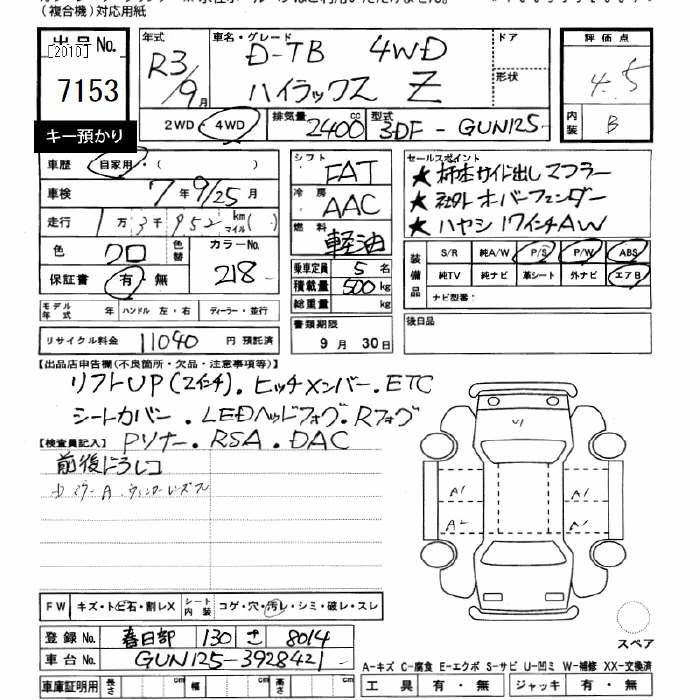 (複合機)対応用紙
出品No.
[2010]
7153
キー預かり
年式 R3/9月
車名・グレード D-TB 4WD
ハイラックス Z
ドア
形状
評価点 4.5
内装 B
2WD・4WD
排気量 2400 cc
型式 3DF-GUN125
車歴 自家用・( )
車検 7年9/25月
走行 1万3千952 km マイル( )
色 クロ 色替
カラーNo. 218
保証書 有・無
モデル年式 年 ハンドル 左・右 ディーラー・並行
リサイクル料金 11040 円 預託済
シフト FAT
冷房 AAC
燃料 軽油
乗車定員 5 名
積載量 500 kg
総重量 kg
書類期限
9月30日
セールスポイント
★柿本サイド出しマフラー
★社外オーバーフェンダー
★ハヤシ17インチAW
装備品
S/R 純A/W P/S P/W ABS
純TV 純ナビ 革シート 外ナビ エアB
ナビ型番:
後日品
【出品店申告欄(不良箇所・欠品・注意事項等)】
リフトUP(2インチ)・ヒッチメンバー・ETC
シートカバー・LEDヘッドフォグ・Rフォグ
Pソナー・RSA・DAC
【検査員記入】
前後ドラレコ
V1
A1 A1
A1
FW キズ・トビ石・割レX
シート内装 コゲ・穴・汚レ・シミ・破レ・スレ
登録No. 春日部 130 さ 8014
車台No. GUN125-3928421
車庫証明用 長さ cm 幅 cm 高さ cm
スペア
A-キズ C-腐食 E-エクボ S-サビ U-凹ミ W-補修 XX-交換済
工具 有・無 ジャッキ 有・無